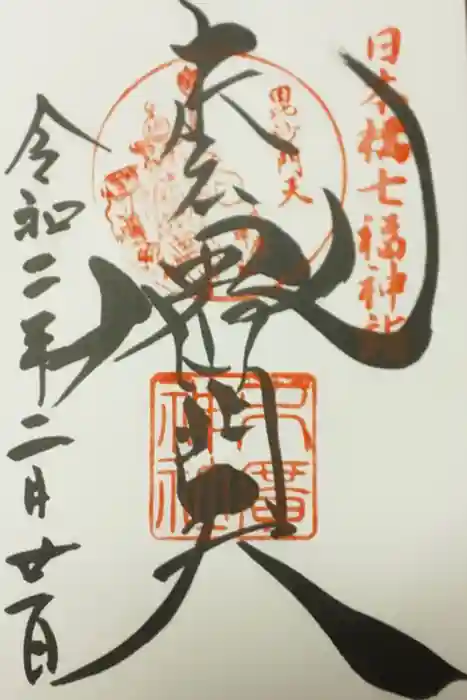 日本橋七福神詣
毘沙門天
末廣神社
毘沙門天
末廣
神社
令和二年二月廿一日